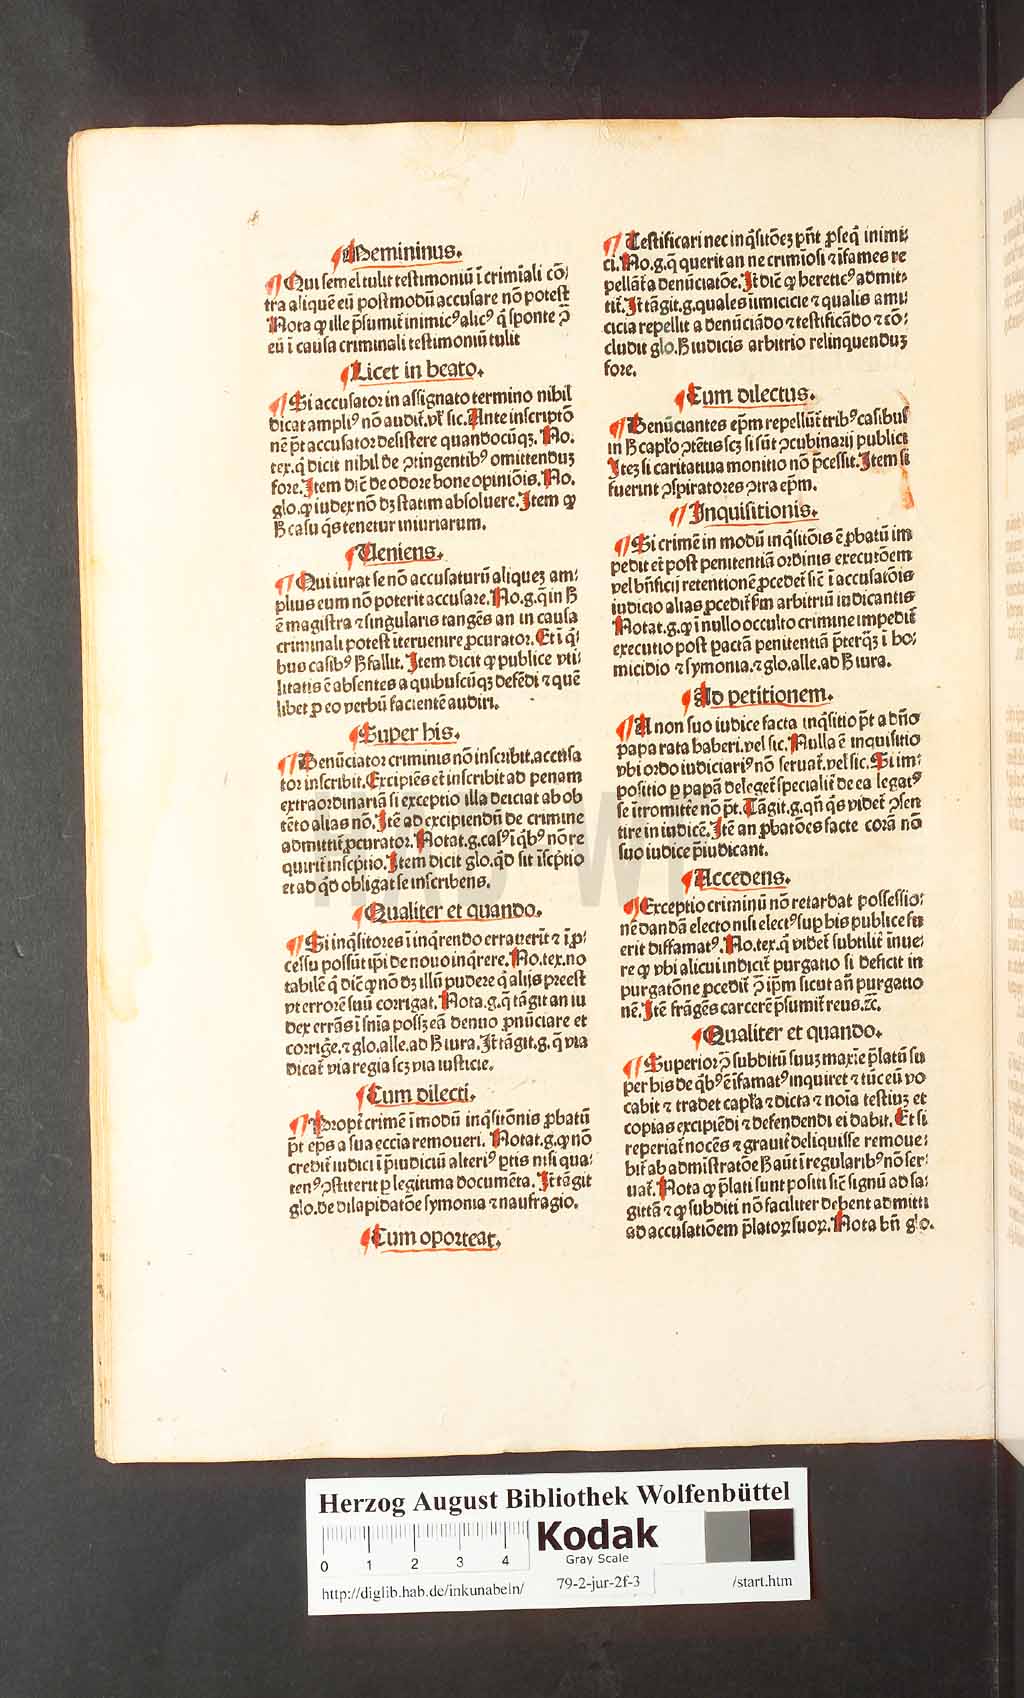 ¶Meminimus.
¶Qui semel tulit testimoniū ī crimīali cō⸗
tra aliquē eū postmodū accusare nō potest
Nota ꝙ ille p̄sumit̄ inimicꝰ alicꝰ q̄ sponte ꝯ̄
eū ī causa criminali testimoniū tulit
¶Licet in beato.
¶Si accusator in assignato termino nihil
dicat ampliꝰ nō audit̄. vl̄ sic. Ante inscriptō
nē p̄t accusator desistere quandocūqꝫ. No.
tex. q̄ dicit nihil de ꝯtingentibꝰ omittenduꝫ
fore. Item dic̄ de odore bone opiniōis. No.
glo. ꝙ iudex nō dꝫ statim absoluere. Item ꝙ
H̄ casu q̄s tenetur iniuriarum.
¶Ueniens.
¶Qui iurat se nō accusaturū aliqueꝫ am⸗
plius eum nō poterit accusare. No. g. q̄ in H̄
ē magistra ⁊ singularis tangēs an in causa
criminali potest īteruenire ꝓcurator. Et ī q̄⸗
bus casibꝰ H̄ fallit. Item dicit ꝙ publice vti⸗
litatis ē absentes a quibuscūqꝫ defēdi ⁊ quē
libet ꝑ eo verbū facientē audiri.
¶Super his.
¶Denūciator criminis nō inscribit. accusa
tor inscribit. Excipiēs et inscribit ad penam
extraordinariā si exceptio illa deiciat ab ob
tēto alias nō. Itē ad excipiendū de crimine
admittit̄ ꝓcurator. Notat. g. casꝰ ī q̄bꝰ nō re
quirit̄ inscp̄tio. Item dicit glo. q̄d sit īscp̄tio
et ad q̄d obligat se inscribens.
¶Qualiter et quando.
¶Si inq̄sitores ī inq̄rendo errauerīt ⁊ ī ꝓ⸗
cessu possūt ip̄i de nouo inq̄rere. No. tex. no
tabilē q̄ dic̄ ꝙ nō dꝫ illū pudere q̄ alijs preest
vt errorē suū corrigat. Nota. g. q̄ tāgit an iu
dex errās ī sn̄ia possꝫ eā denuo ꝓnūciare et
corriḡe. ⁊ glo. alle. ad H̄ iura. It̄ tāgit. g. q̄ via
dicat̄ via regia scꝫ via iusticie.
¶Cum dilecti.
¶Propt̄ crimē ī modū inq̄sitōnis ꝓbatū
p̄t ep̄s a sua eccīa remoueri. Notat. g. ꝙ nō
credit̄ iudici ī p̄iudiciū alteriꝰ ptis nisi qua⸗
tenꝰ ꝯstiterit ꝑ legitima documēta. It̄ tāgit
glo. de dilapidatōe symonia ⁊ naufragio.
¶Cum oporteat.
¶Testificari nec inq̄sitōeꝫ pn̄t ꝓseq̄ inimi⸗
ci. No. g. q̄ querit an ne crimīosi ⁊ īfames re
pellant̄ a denūciatōe. It̄ dic̄ ꝙ hereticꝰ admit⸗
tit̄. It̄ tāgit. g. quales īimicicie ⁊ qualis ami
cicia repellit a denūciādo ⁊ testificādo ⁊ cō⸗
cludit glo. H̄ iudicis arbitrio relinquenduꝫ
fore.
¶Cum dilectus.
¶Denūciantes ep̄m repellūt̄ tribꝰ casibus
in H̄ capl̄o ꝯtētis scꝫ si sūt ꝯcubinarij publici
Iteꝫ si caritatiua monitio nō p̄cessit. Item si
fuerint ꝯspiratores ꝯtra ep̄m.
¶Inquisitionis.
¶Si crimē in modū inq̄sitōis ē ꝓbatū im
pedit et post penitentiā ordinis executōem
vel bn̄ficij retentionē ꝓcedet̄ sic̄ ī accusatōis
iudicio alias ꝓcedit̄ sm̄ arbitriū iudicantis
Notat. g. ꝙ ī nullo occulto crimine impedit̄
executio post pactā penitentiā p̄terq̄ꝫ ī ho⸗
micidio ⁊ symonia. ⁊ glo. alle. ad H̄ iura.
¶Ad petitionem.
¶A non suo iudice facta inq̄sitio p̄t a dn̄o
papa rata haberi. vel sic. Nulla ē inquisitio
vbi ordo iudiciariꝰ nō seruat̄. vel sic. Si im⸗
positio ꝑ papā deleget̄ specialit̄ de ea legatꝰ
se ītromitte nō p̄t. Tāgit. g. qn̄ q̄s videt̄ ꝯsen
tire in iudicē. Itē an ꝓbatōes facte corā nō
suo iudice p̄iudicant.
¶Accedens.
¶Exceptio criminū nō retardat possessio⸗
nē dandā electo nisi electꝰ suꝑ his publice fu
erit diffamatꝰ. No. tex. q̄ videt̄ subtilit̄ īnue⸗
re ꝙ vbi alicui indicit̄ purgatio si deficit in
purgatōne ꝓcedit̄ ꝯ̄ ip̄m sicut an̄ purgatio
nē. Itē frāgēs carcerē p̄sumit̄ reus. ꝛc̄.
¶Qualiter et quando.
¶Superior ꝯ̄ subditū suuꝫ maxīe p̄latū su
per his de q̄bꝰ ē īfamatꝰ inquiret ⁊ tūc eū vo
cabit ⁊ tradet capl̄a ⁊ dicta ⁊ noīa testiuꝫ et
copias excipiēdi ⁊ defendendi ei dabit. Et si
reperiat̄ nocēs ⁊ grauit̄ deliquisse remoue⸗
bit̄ ab admīstratōe H̄ aūt ī regularibꝰ nō ser⸗
uat̄. Nota ꝙ p̄lati sunt positi sic̄ signū ad sa⸗
gittā ⁊ ꝙ subditi nō faciliter debent admitti
ad accusatiōem p̄latoꝝ suoꝝ. Nota bn̄ glo.
Herzog August Bibliothek Wolfenbüttel
0 1 2 3 4
Kodak
Gray Scale
http://diglib.hab.de/inkunabeln/ 79-2-jur-2f-3 /start.htm